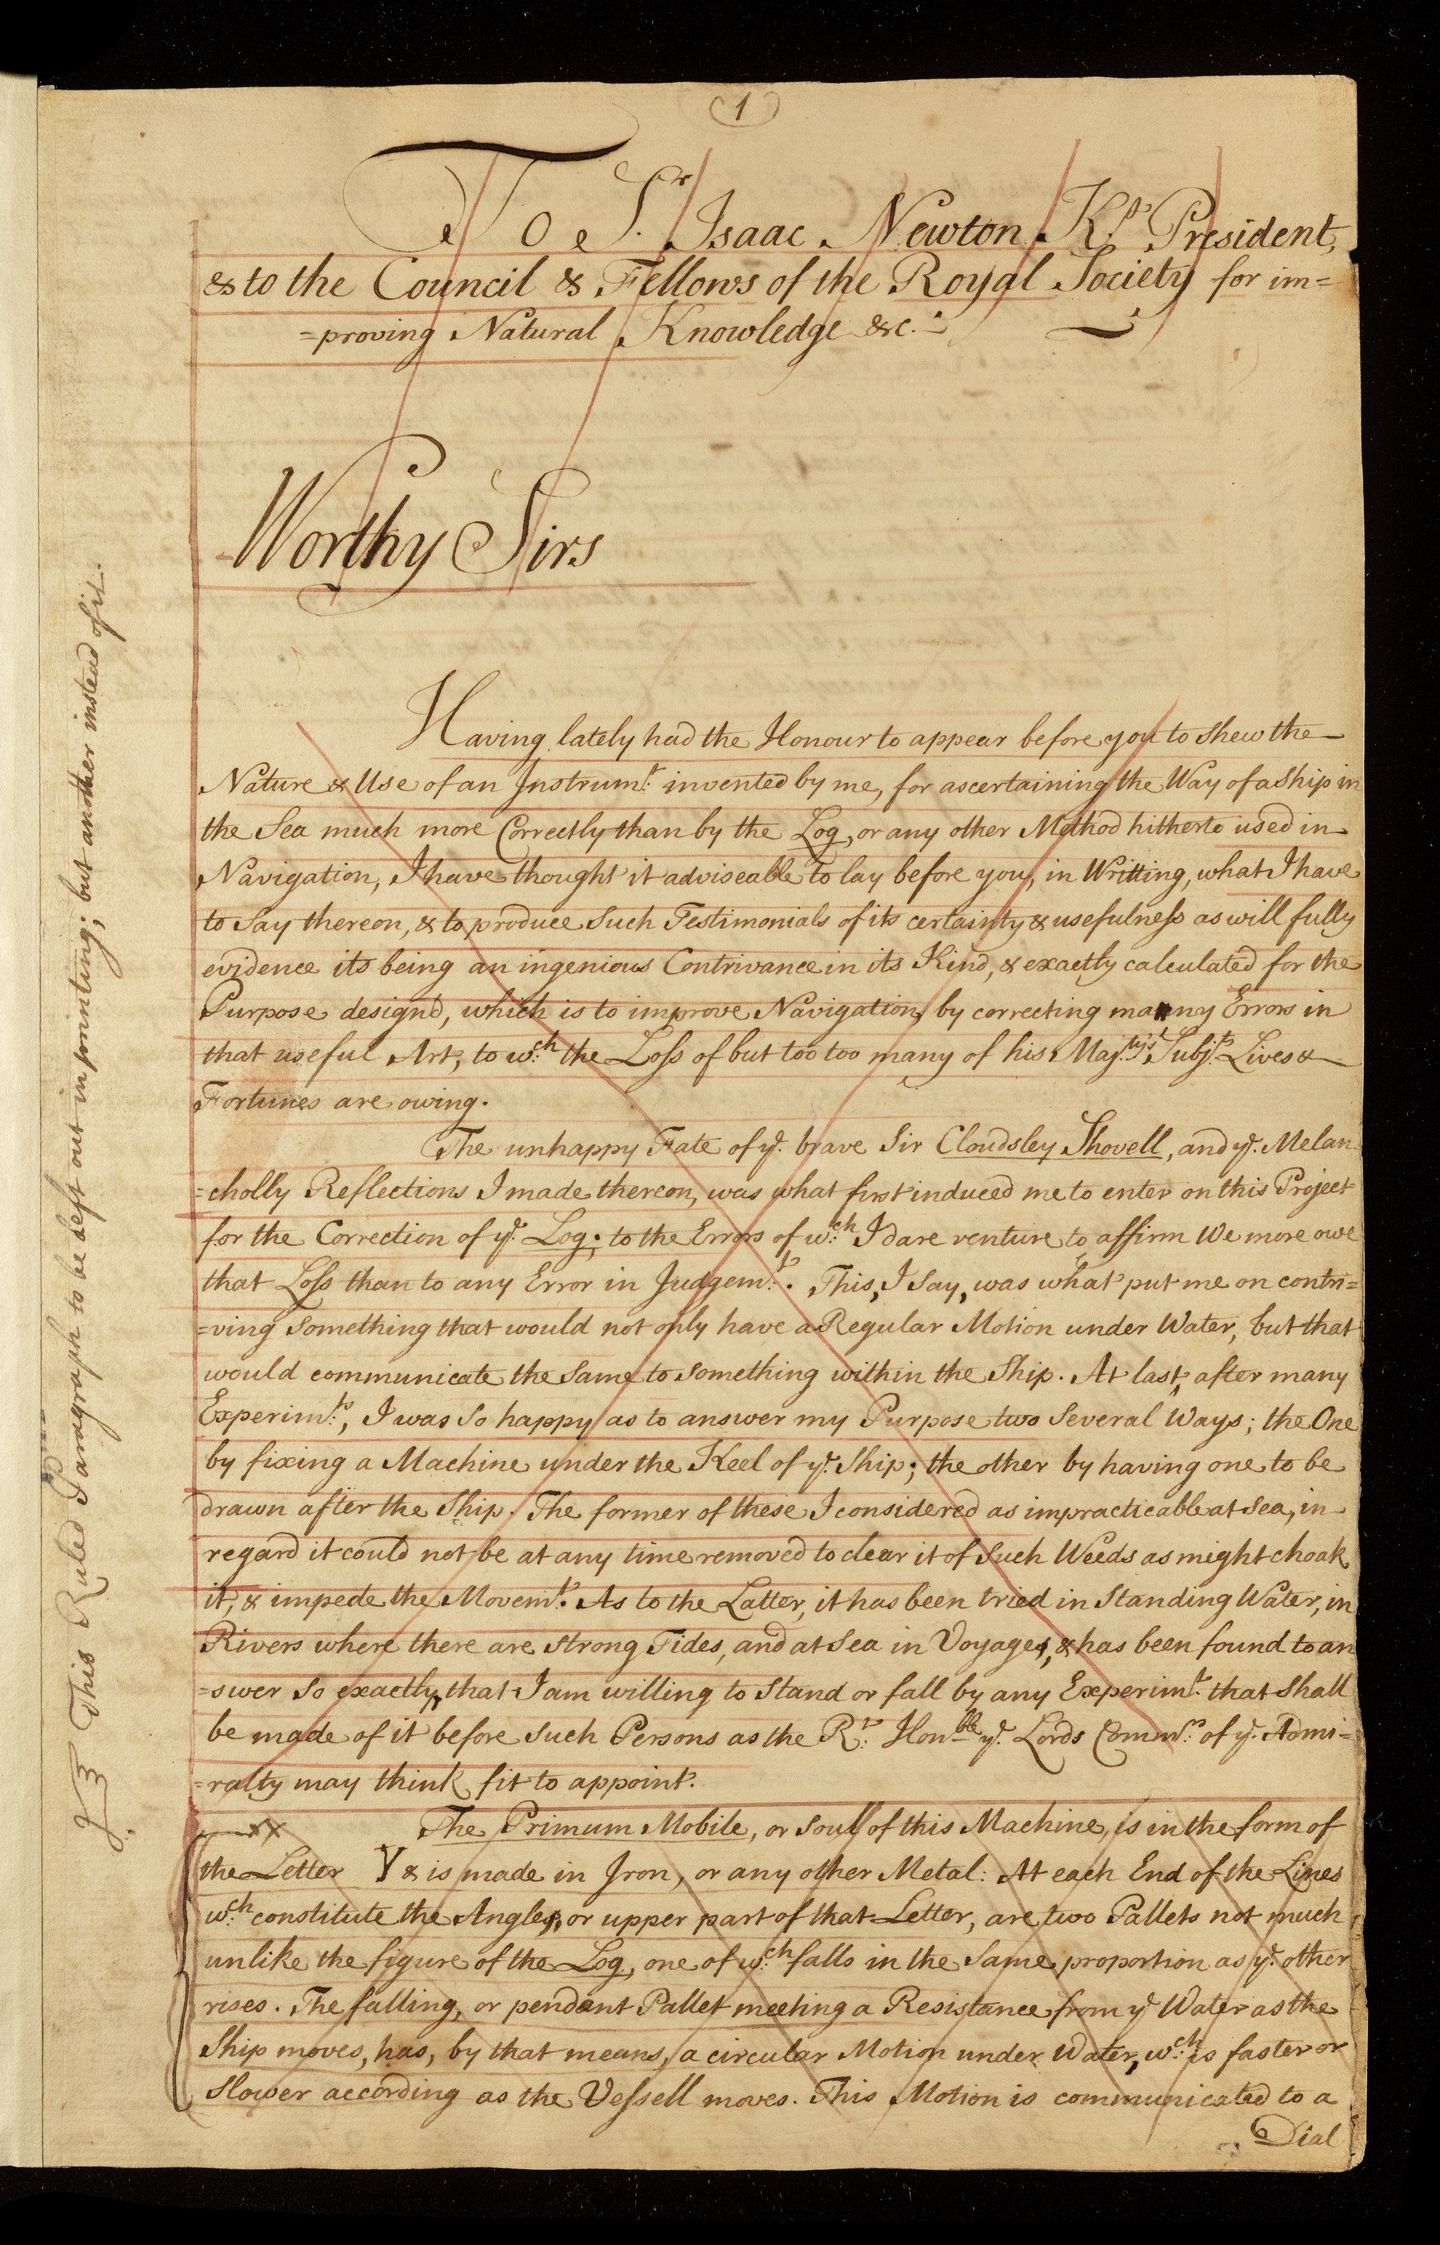 1
To Sr. Isaac Newton Kt. President,
& to the Council & Fellows of the Royal Society for im=
=proving Natural Knowledge &c.
Worthy Sirs
Having lately had the Honour to appear before you to shew the
Nature & Use of an Instrumt. invented by me, for ascertaining the Way of a Ship in
the Sea much more Correctly than by the Log, or any other Method hitherto used in
Navigation, I have thought it adviseable to lay before you, in Writting, what I have
to Say thereon, & to produce Such Testimonials of its certainty & usefulness as will fully
evidence its being an ingenious Contrivance in its Kind, & exactly calculated for the
Purpose designd, which is to improve Navigation, by correcting many Errors in
that useful Art, to wch. the Loss of but too too many of his Majtys. Subjts. Lives &
Fortunes are owing.
The unhappy Fate of ye. brave Sir Cloudsley Shovell, and ye. Melan
=cholly Reflections I made thereon, was what first induced me to enter on this Project
for the Correction of ye. Log; to the Errors of wch. I dare venture to affirm We more owe
that Loss than to any Error in Judgemt. This, I Say, was what put me on contri=
=ving Something that would not only have a Regular Motion under Water, but that
would communicate the Same to something within the Ship. At last, after many
Experimts., I was So happy as to answer my Purpose two Several Ways; the One
by fixing a Machine under the Keel of ye. Ship; the other by having one to be
drawn after the Ship. The former of these I considered as impracticable at Sea, in
regard it could not be at any time removed to clear it of Such Weeds as might choak
it, & impede the Movemt. As to the Latter, it has been tried in Standing Water, in
Rivers where there are Strong Tides, and at Sea in Voyages, & has been found to an
=swer So exactly, that I am willing to Stand or fall by any Experimt. that Shall
be made of it before Such Persons as the Rt. Honble ye. Lords Commrs. of ye. Admi=
=ralty may think fit to appoint.
The Primum Mobile, or Soul of this Machine, is in the form of
the Letter Y & is made in Iron, or any other Metal: At each End of the Lines
wch. constitute the Angles, or upper part of that Letter, are two Pallets not much
unlike the figure of the Log, one of wch. falls in the Same proportion as ye. other
rises. The falling, or pendant Pallet meeting a Resistance from ye. Water as the
Ship moves, has, by that means, a circular Motion under Water, wch. is faster or
Slower according as the Vessell moves. This Motion is communicated to a
Dial
This Ruled Paragraph to be left out in printing; but another instead of it.